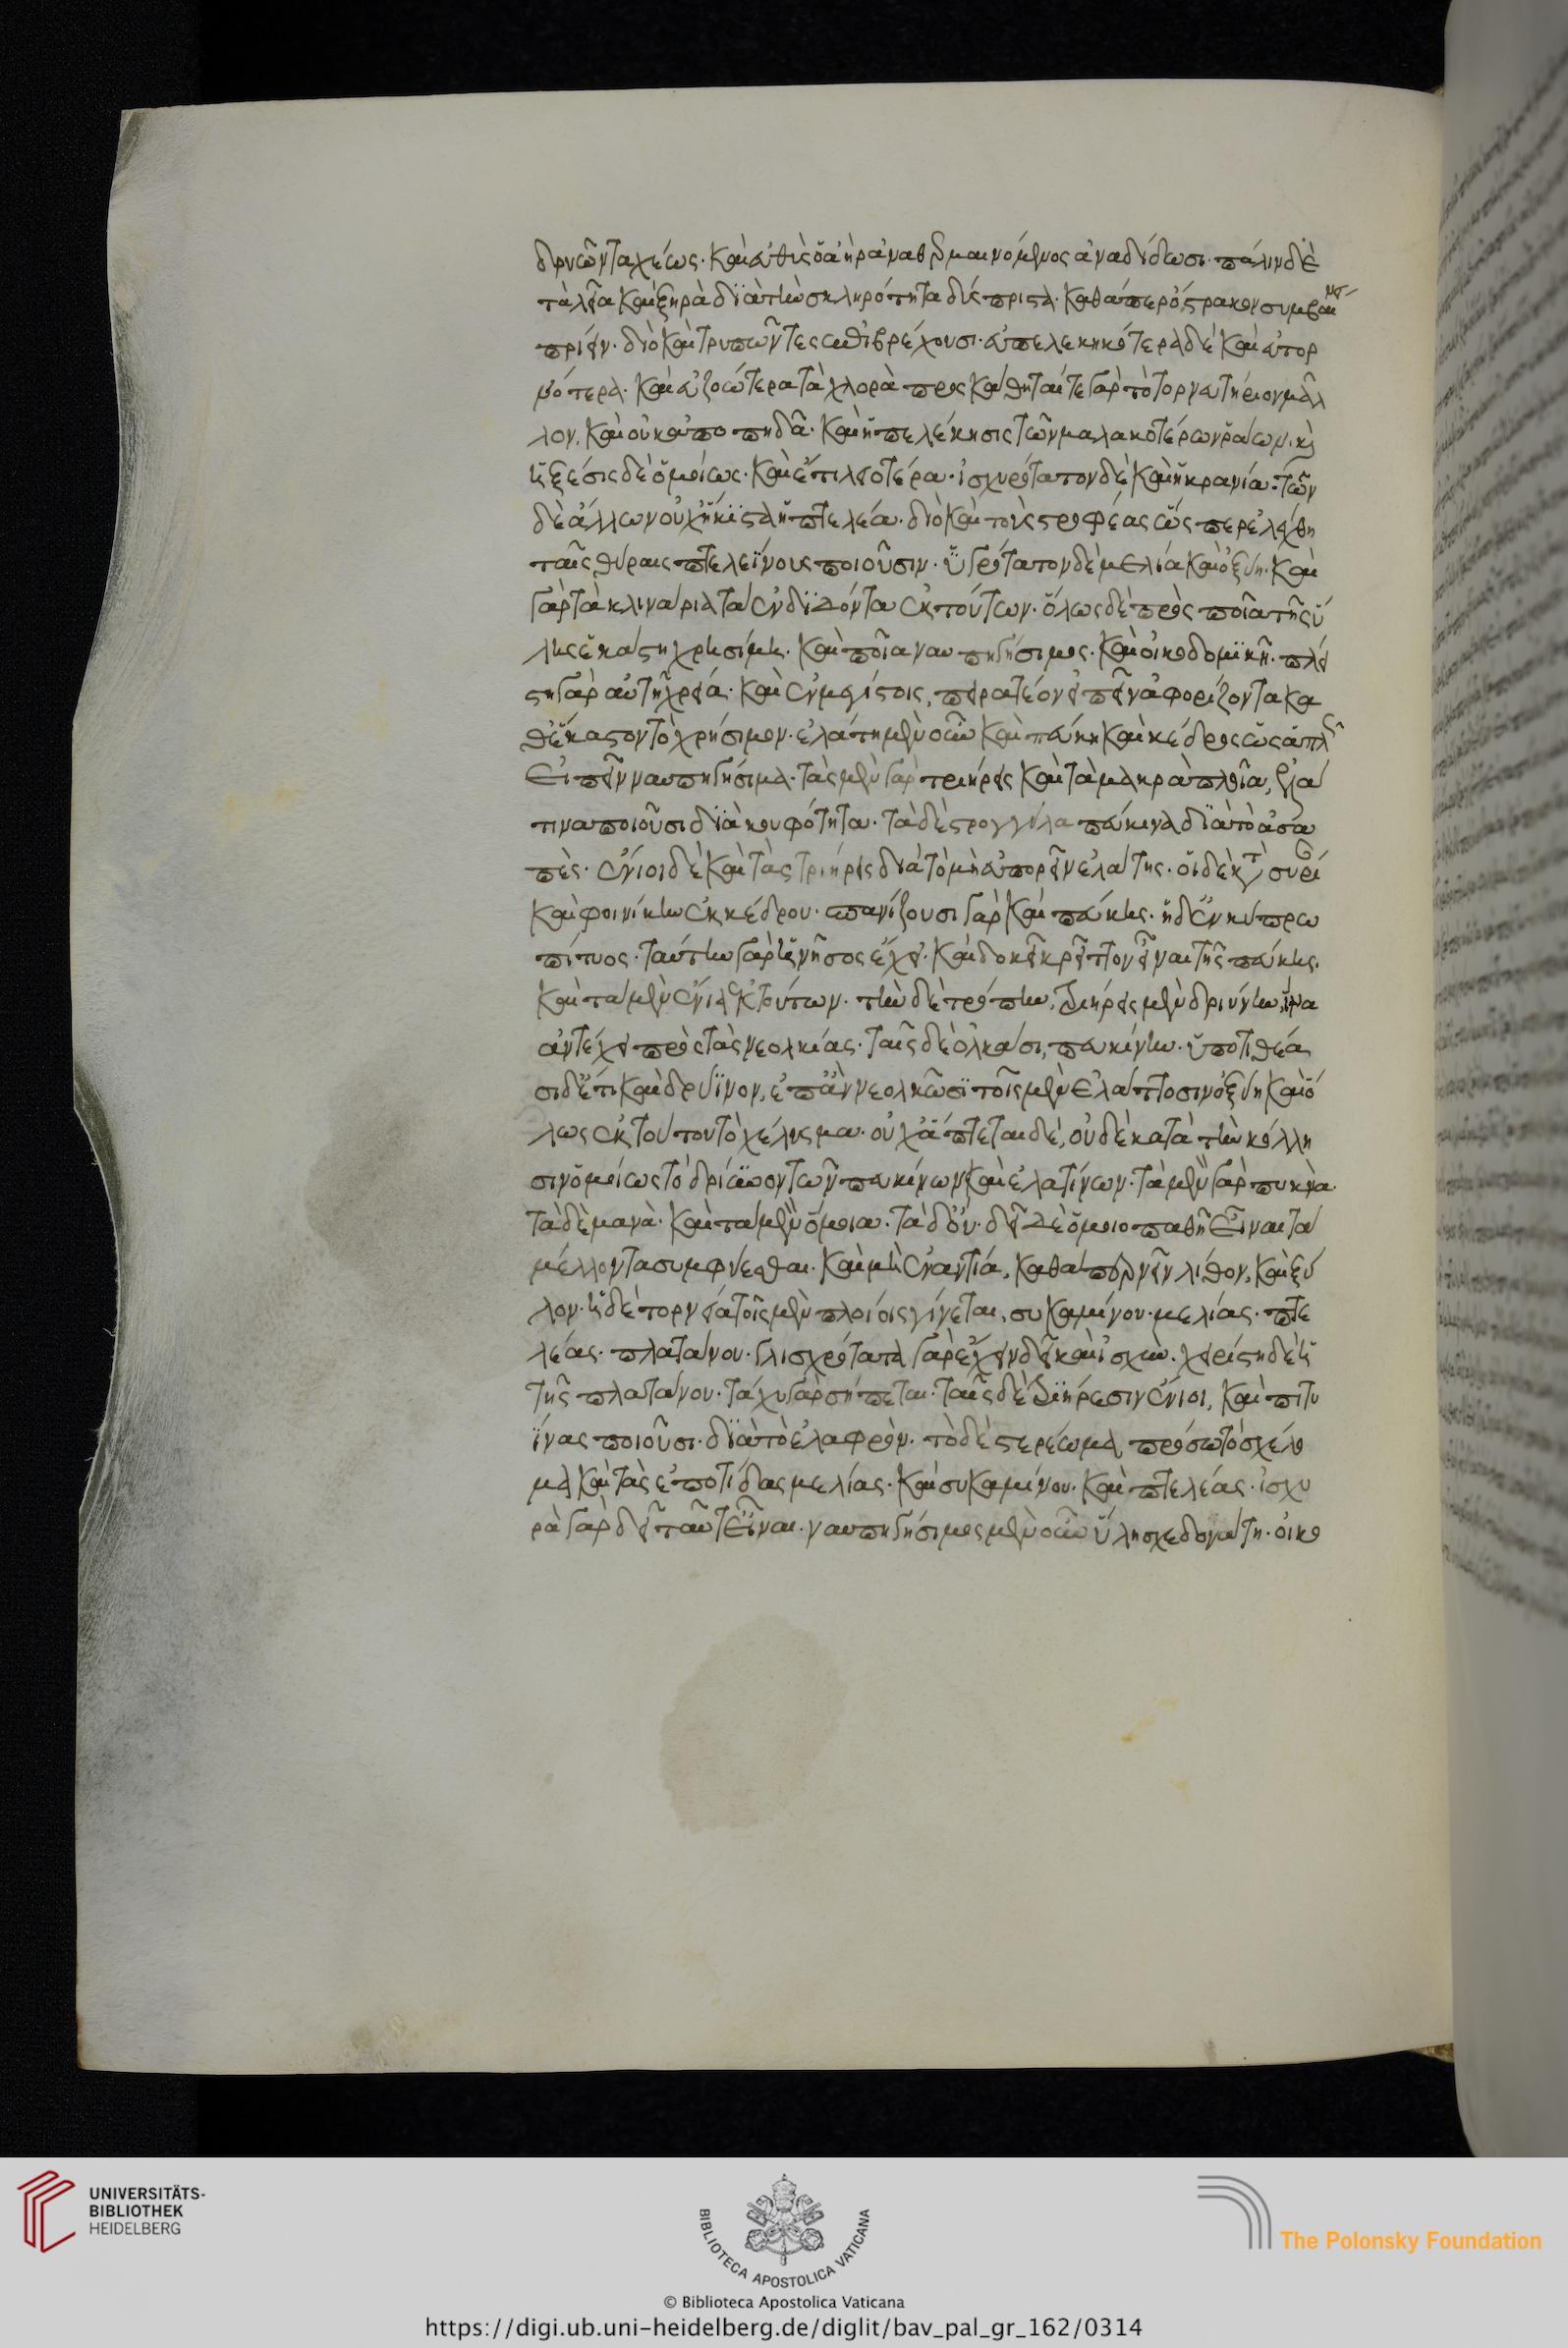 δρυῶν ταχέως· καὶ αὖθις ὁ ἀὴρ ἀναθερμαινόμενος ἀναδίδωσι· πάλιν δὲ
τὰ λεῖα καὶ ξηρὰ διὰ τὴν σκληρότητα δύσπριστα· καθάπερ ὄστρακον συμβαίνει
πρίειν· διὸ καὶ τρυπῶντες ἐπιβρέχουσι· εὐπελεκητότερα δὲ καὶ εὐτορ
νότερα· καὶ εὐξοώτερα τὰ χλωρὰ προσκάθηταί τε γὰρ τὸ τορνευτήριον μᾶλ
λον, καὶ οὐκ ἀποπηδᾷ· καὶ ἡ πελέκησις τῶν μαλακοτέρων ῥάων· καὶ
ἡ ξέσις δὲ ὁμοίως· καὶ ἔτι λειοτέρα· ἰσχυρότατον δὲ καὶ ἡ κρανία· τῶν
δὲ ἄλλων οὐχ ἥκιστα ἡ πτελέα· διὸ καὶ τοὺς στροφέας ὥσπερ ἐλέχθη
ταῖς θύραις πτελεΐνους ποιοῦσιν· ὑγρότατον δὲ μελία καὶ ὀξύη· καὶ
γὰρ τὰ κλινάρια τὰ ἐνδιδόντα ἐκ τούτων· ὅλως δὲ πρὸς ποῖα τῆς ὕ
λης ἑκάστη χρησίμη· καὶ ποία ναυπηγήσιμος· καὶ οἰκοδομικὴ· πλεί
στη γὰρ αὐτὴ ἡ χρεία· καὶ ἐν μεγίστοις, πειρατέον εἰπεῖν ἀφορίζοντα κα
θ' ἕκαστον τὸ χρήσιμον· ἐλάτη μὲν οὖν καὶ πεύκη καὶ κέδρος ὡς ἁπλῶς
εἰπεῖν ναυπηγήσιμα· τὰς μὲν γὰρ τριήρεις καὶ τὰ μακρὰ πλοῖα, ἐλά
τινα ποιοῦσι διὰ κουφότητα· τὰ δὲ στρογγύλα πεύκινα διὰ τὸ ἀσα
πὲς· ἔνιοι δὲ καὶ τὰς τριήρεις διὰ τὸ μὴ εὐπορεῖν ἐλάτης· οἱ δὲ κατὰ συρί
καὶ φοινίκην ἐκ κέδρου· σπανίζουσι γὰρ καὶ πεύκης· οἱ δ' ἐν κύπρω
πίτυος· ταύτην γὰρ ἡ νῆσος ἔχει· καὶ δοκεῖ κρεῖττον εἶναι τῆς πεύκης·
καὶ τὰ μὲν ἔνια ἐκ τούτων· τὴν δὲ τρόπιν, τριήρεις μὲν δρυίνην, ἵνα
ἀντέχει πρὸς τὰς νεολκίας· ταῖς δὲ ὁλκάσι, πευκίνην· ὑποτιθέα
σι δ' ἔτι καὶ δρύϊνον, ἐπὰν νεολκῶσι τοῖς μὲν ἐλάττοσιν ὀξύην καὶ ὅ
λως ἐκ τούτου τὸ χέλυσμα· οὐχ ἅπτεται δὲ, οὐδὲ κατὰ τὴν κόλλη
σιν ὁμοίως τὸ δρύϊνον τῶν πευκίνων καὶ ἐλατίνων· τὰ μὲν γὰρ πυκνὰ
τὰ δὲ μανὰ· καὶ τὰ μὲν ὅμοια· τὰ δ' οὔ· δεῖ δὲ ὁμοιοπαθῆ εἶναι τὰ
μέλλοντα συμφύεσθαι· καὶ μὴ ἐναντία, καθαπερανεῖν λίθον, καὶ ξύ
λον· ἡ δὲ τορνεία τοῖς μὲν πλοίοις γίνεται, συκαμίνου· μελίας· πτε
λέας· πλατάνου· γλισχρότατα γὰρ ἔχειν δεῖ καὶ ἰσχὺν· χειρίστη δὲ ἡ
τῆς πλατάνου· ταχὺ γὰρ σήπεται· ταῖς δὲ τριήρεσιν ἔνιοι, καὶ πιτυ
ΐνας ποιοῦσι· διὰ τὸ ἐλαφρὸν· τὸ δὲ στερέωμα, πρὸς ὧ τὸ χέλυσ
μα καὶ τὰς ἐπωτίδας μελίας· καὶ συκαμίνου· καὶ πτελέας· ἰσχυ
ρὰ γὰρ δεῖ ταῦτ' εἶναι· ναυπηγήσιμος μὲν οὖν ὕλη σχεδὸν αὕτη· οἰκο
UNIVERSITÄTS-
BIBLIOTHEK
HEIDELBERG
BIBLIOTECA APOSTOLICA VATICANA
The Polonsky Foundation
© Biblioteca Apostolica Vaticana
https://digi.ub.uni-heidelberg.de/diglit/bav_pal_gr_162/0314